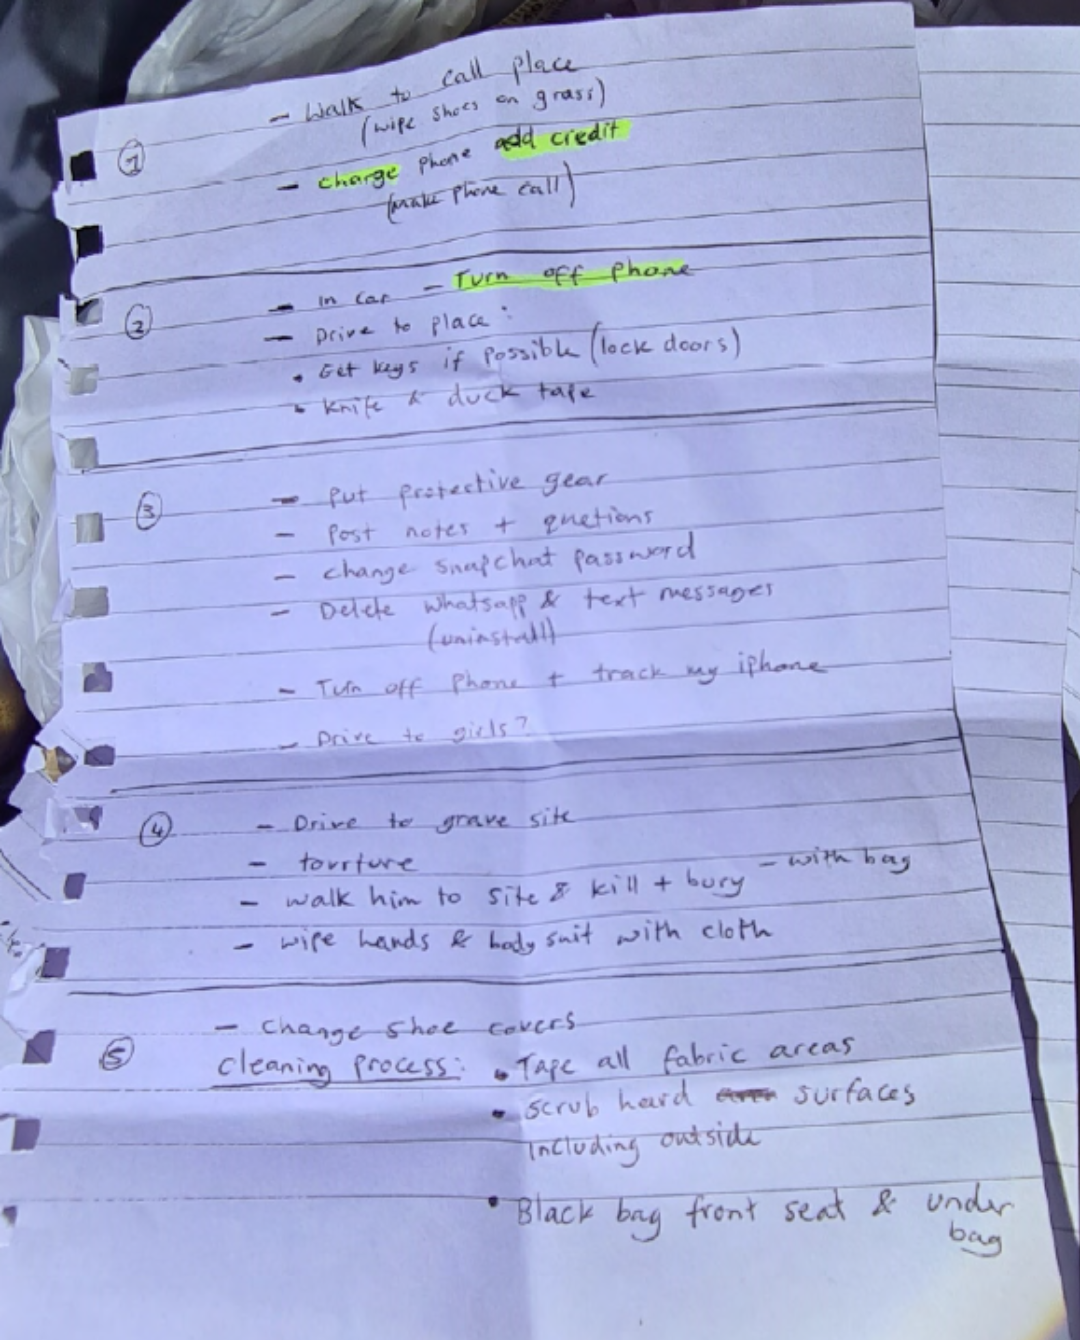 ① - Walk to call place
(wipe shoes on grass)
- charge phone add credit
(make phone call)
② - In car - Turn off phone
- Drive to place :
• Get keys if possible (lock doors)
• Knife & duck tape
③ - Put protective gear
- Post notes + quetions
- change snapchat password
- Delete whatsapp & text messages
(uninstall)
- Turn off Phone + track my iphone
- Drive to girls?
④ - Drive to grave site
- tourture
- walk him to site & kill + bury - with bag
- wipe hands & body suit with cloth
⑤ - change shoe covers
cleaning process: • Tape all fabric areas
• scrub hard surfaces
including outside
• Black bag front seat & under
bag